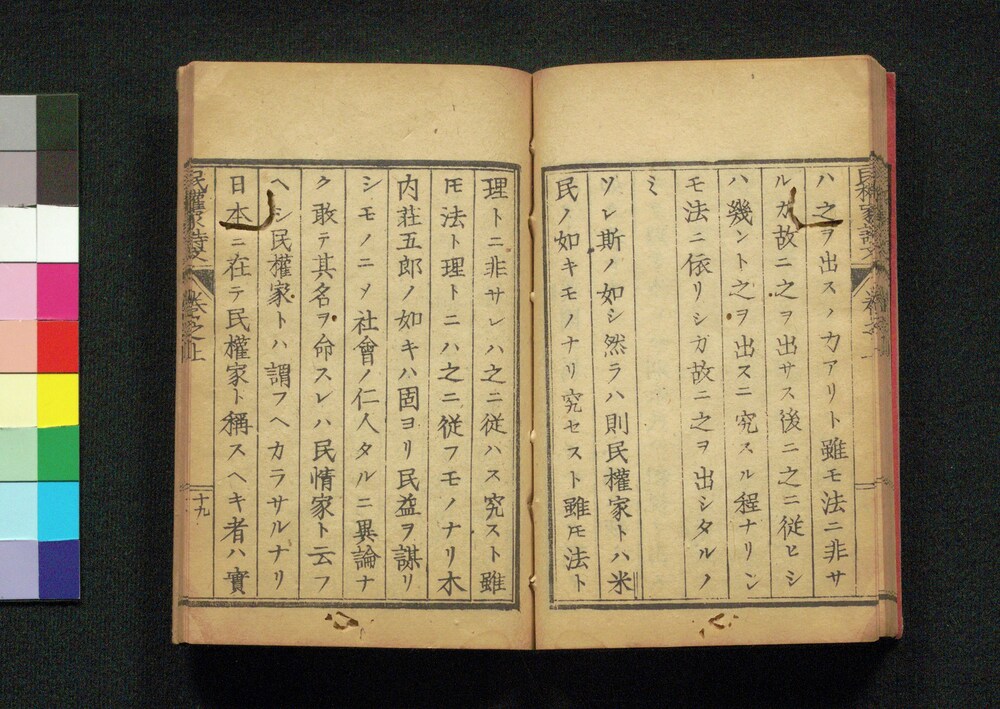 ハ之ヲ出スノ力アリト雖モ法ニ非サ
ルカ故ニ之ヲ出サス後ニ之ニ従ヒシ
ハ幾ント之ヲ出スニ究スル程ナリシ
モ法ニ依リシカ故ニ之ヲ出シタルノ
ミ
ソレ斯ノ如シ然ラハ則民權家トハ米
民ノ如キモノナリ究セスト雖モ法ト
理トニ非サレハ之ニ従ハス究スト雖
モ法ト理トニハ之ニ従フモノナリ木
内荘五郎ノ如キハ固ヨリ民益ヲ謀リ
シモノニメ社會ノ仁人タルニ異論ナ
ク敢テ其名ヲ命スレハ民情家ト云フ
ヘシ民權家トハ謂フヘカラサルナリ
日本ニ在テ民權家ト稱スヘキ者ハ實
卷之上
十九